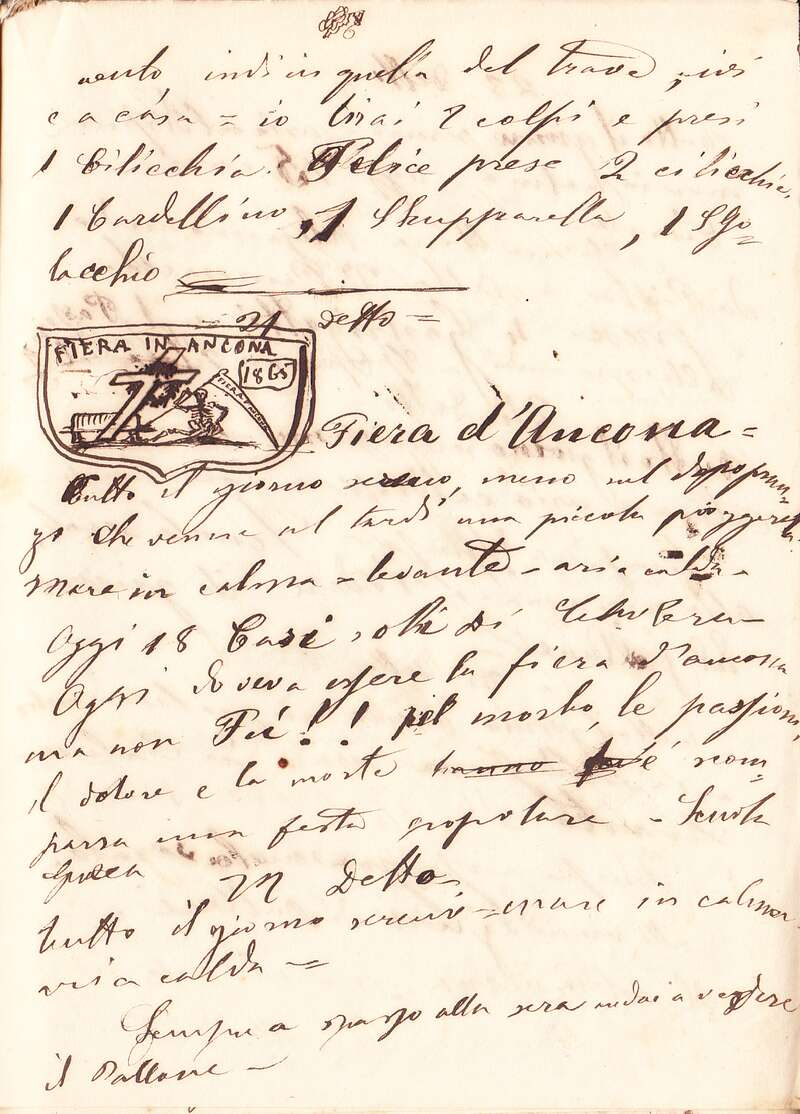 vento indi in quella del trave, indi
e a casa = io tirai 2 colpi e presi
1 Cilicchia. Felice prese 2 cilicchie,
1 Cardellino, 1 Skupparella, 1 Sgo-
lacchio
21 detto =
FIERA IN ANCONA
1865
Fiera d'Ancona =
Tutto il giorno sereno, meno sul dopopran-
zo che venne sul tardi una piccola pioggerella
mare in calma = levante - aria calda -
Oggi 18 Casi soli di
Oggi doveva essere la fiera d'ancona
ma non Fu!! pel morbo, le passioni,
il dolore e la morte è scom-
parsa una festa popolare - Scuola
22 Detto
tutto il giorno sereno = mare in calma -
aria calda =
Sempre a spasso alla sera andai a vedere
il Pallone -